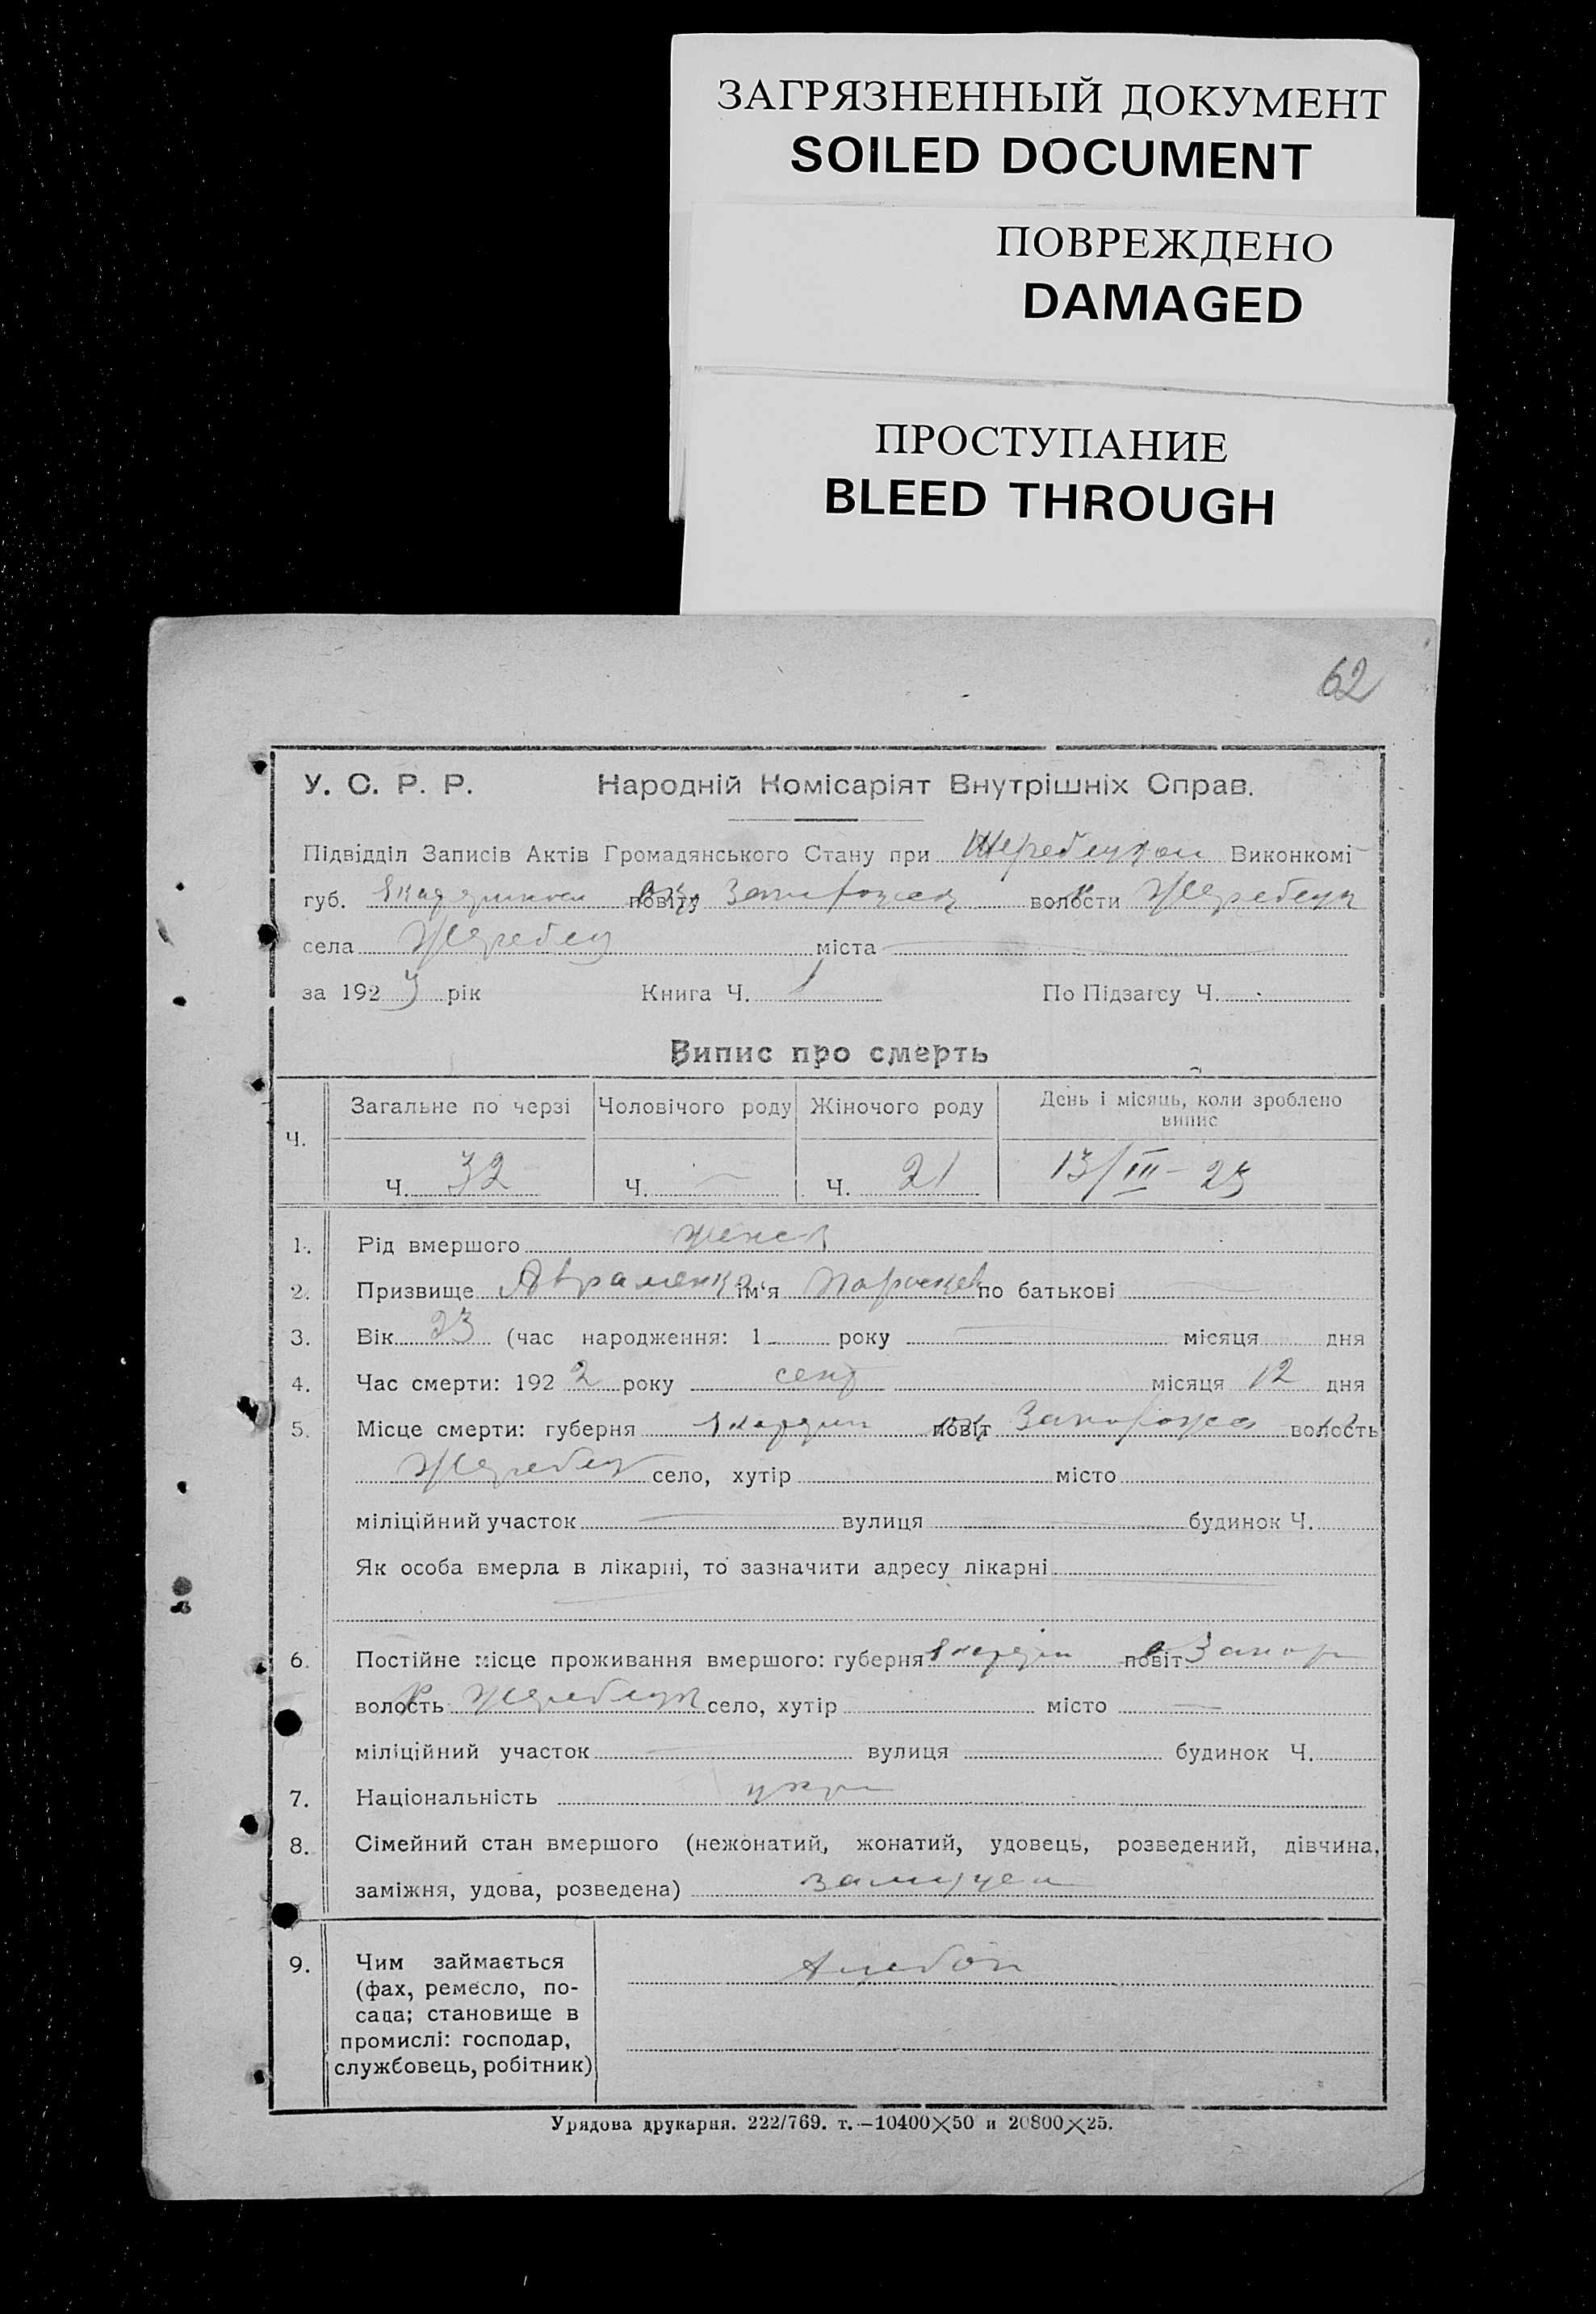 ЗАГРЯЗНЕННЫЙ ДОКУМЕНТ
SOILED DOCUMENT
ПОВРЕЖДЕНО
DAMAGED
ПРОСТУПАНИЕ
BLEED THROUGH
62
У. С. Р. Р. Народній Комісаріят Внутрішніх Справ.
Підвідділ Записів Актів Громадянського Стану при Виконкомі
губ. повіту волости
села Жеребец міста
за 1923 рік Книга Ч. 1 По Підзагсу Ч.
Випис про смерть
Ч. Загальне по черзі Чоловічого роду Жіночого роду День і місяць, коли зроблено випис
Ч. 32 Ч. — Ч. 21 13/III – 23
1. Рід вмершого женск
2. Призвище Авраменко ім'я по батькові —
3. Вік 23 (час народження: 1 року — місяця дня
4. Час смерти: 1922 року сент місяця 12 дня
5. Місце смерти: губерня повіт волость
Жеребец село, хутір місто
міліційний участок — вулиця — будинок Ч.
Як особа вмерла в лікарні, то зазначити адресу лікарні —
6. Постійне місце проживання вмершого: губерня повіт Запор
волость село, хутір місто —
міліційний участок — вулиця будинок Ч.
7. Національність укр
8. Сімейний стан вмершого (нежонатий, жонатий, удовець, розведений, дівчина,
заміжня, удова, розведена) замужем
9. Чим займається
(фах, ремесло, по-
сада; становище в
промислі: господар,
службовець, робітник)
Урядова друкарня. 222/769. т.—10400×50 и 20800×25.